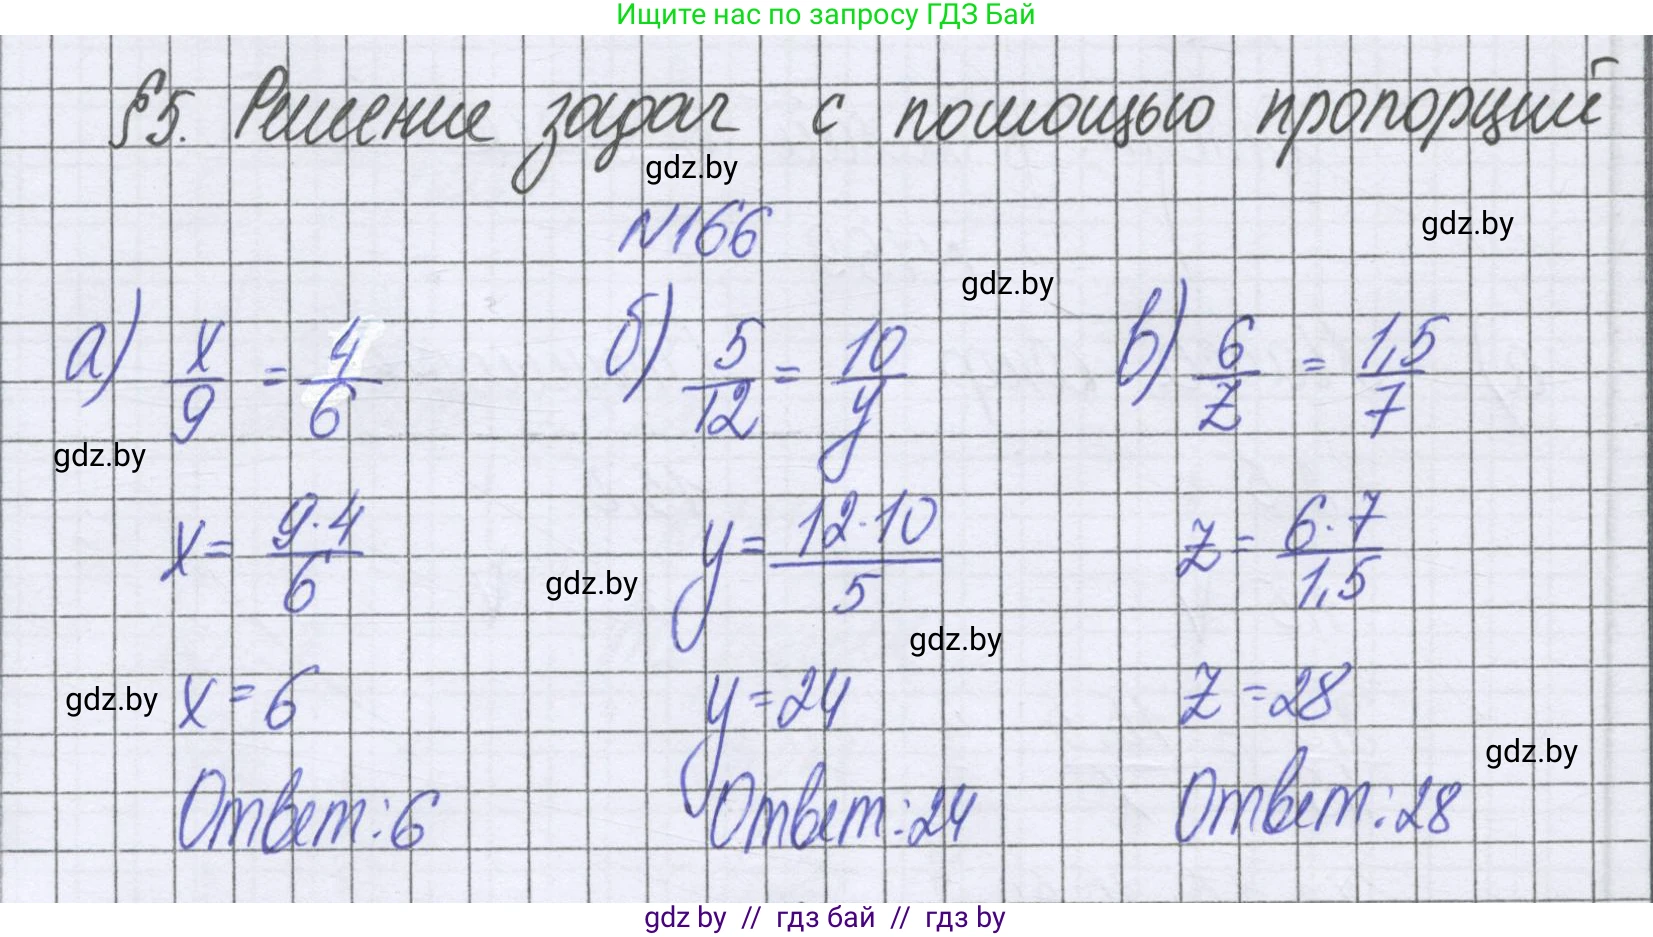 Ищите нас по запросу ГДЗ Бай
§5. Решение задач с помощью пропорций
gdz.by
№166
gdz.by
gdz.by
а) x/9 = 4/6 б) 5/12 = 10/y в) 6/z = 1,5/7
gdz.by
x = 9·4/6 y = 12·10/5 z = 6·7/1,5
gdz.by
gdz.by
gdz.by
x = 6 y = 24 z = 28
gdz.by
Ответ: 6 Ответ: 24 Ответ: 28
gdz by // гдз бай // гдз by